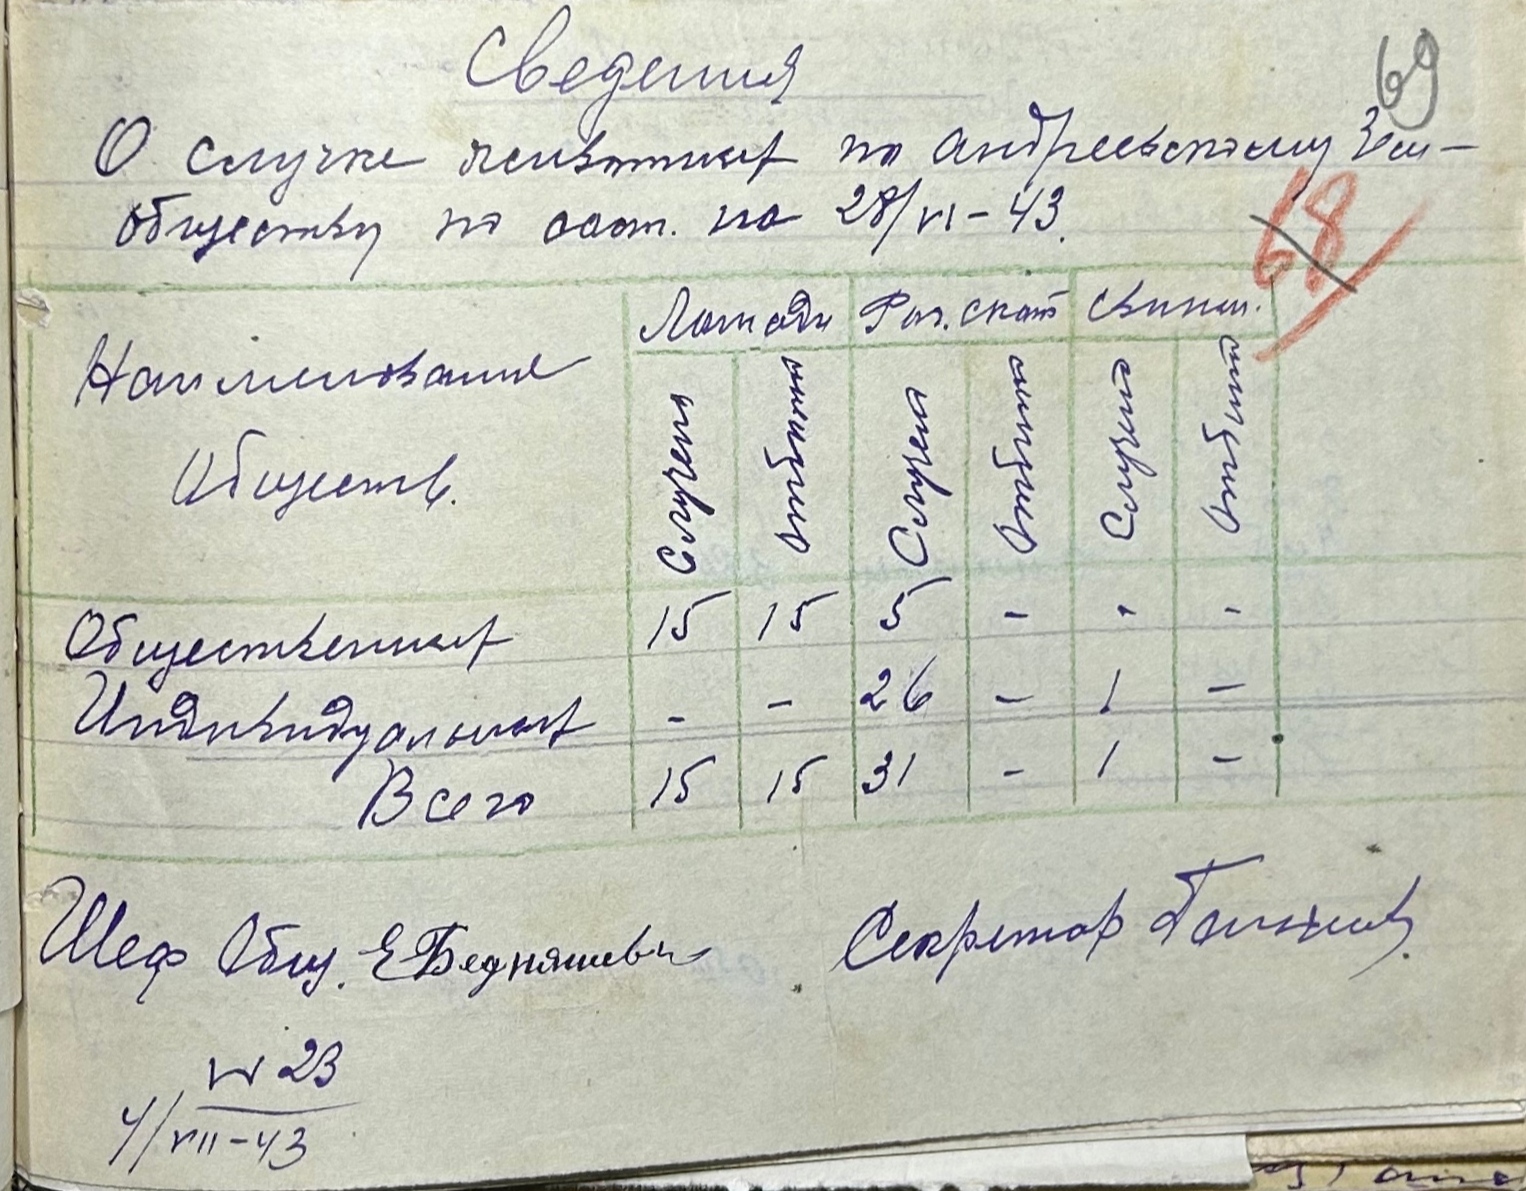 69
Сведения
О случке животных по Андреевскому Зем-
обществу по сост. на 28/VI-43.
68
Наименование Обществ.
Лошади Рог. скот Свиньи.
Случено Отбито Случено Отбито Случено Отбито
Общественных 15 15 5 - - -
Индивидуальных - - 26 - 1 -
Всего 15 15 31 - 1 -
Шеф Общ. Е Бедняшевич Секретар
№ 23
4/VII-43